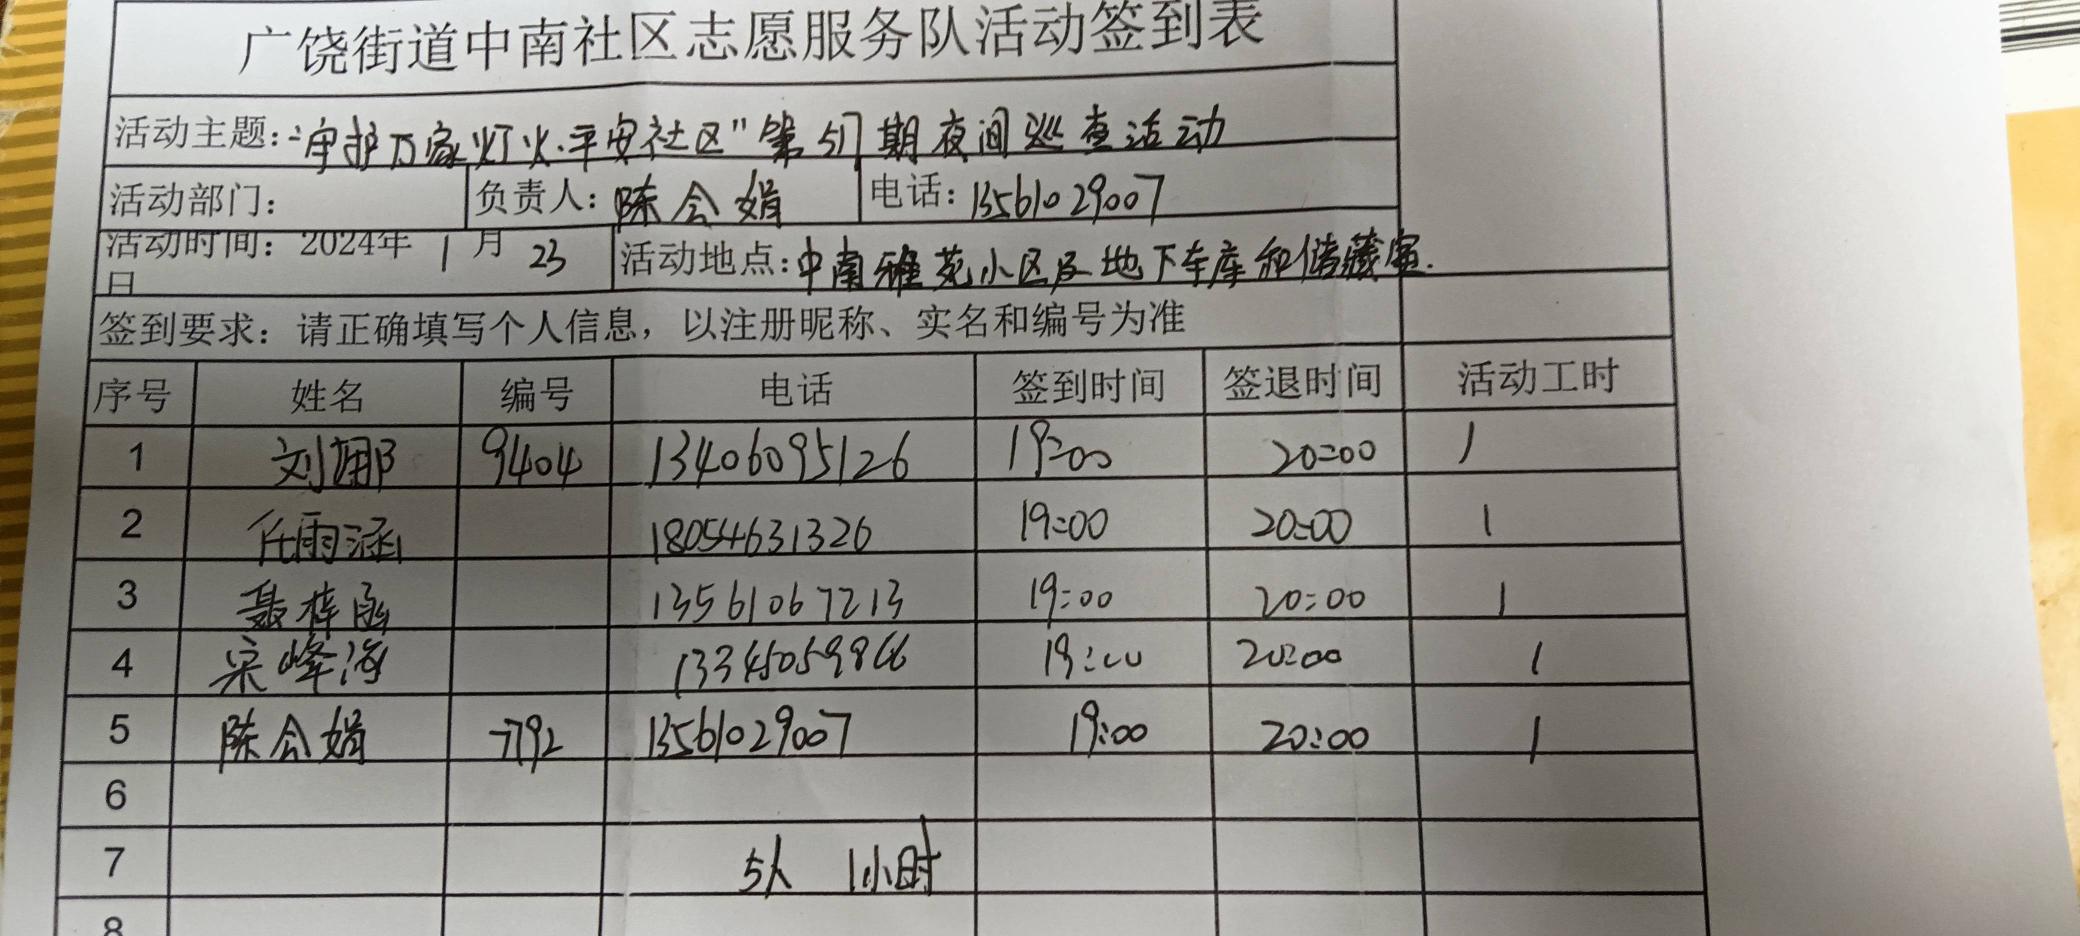 广饶街道中南社区志愿服务队活动签到表
活动主题:“守护万家灯火·平安社区”第517期夜间巡查活动
活动部门: 负责人: 陈会娟 电话: 13561029007
活动时间: 2024年 1 月 23 日 活动地点: 中南雅苑小区及地下车库和储藏室.
签到要求: 请正确填写个人信息, 以注册昵称、实名和编号为准
序号 姓名 编号 电话 签到时间 签退时间 活动工时
1 刘娜 9404 13406095126 19:00 20:00 1
2 任雨涵 18054631326 19:00 20:00 1
3 聂梓函 13561067213 19:00 20:00 1
4 宋峰海 19:00 20:00 1
5 陈会娟 7792 13561029007 19:00 20:00 1
6
7 5人 1小时
8